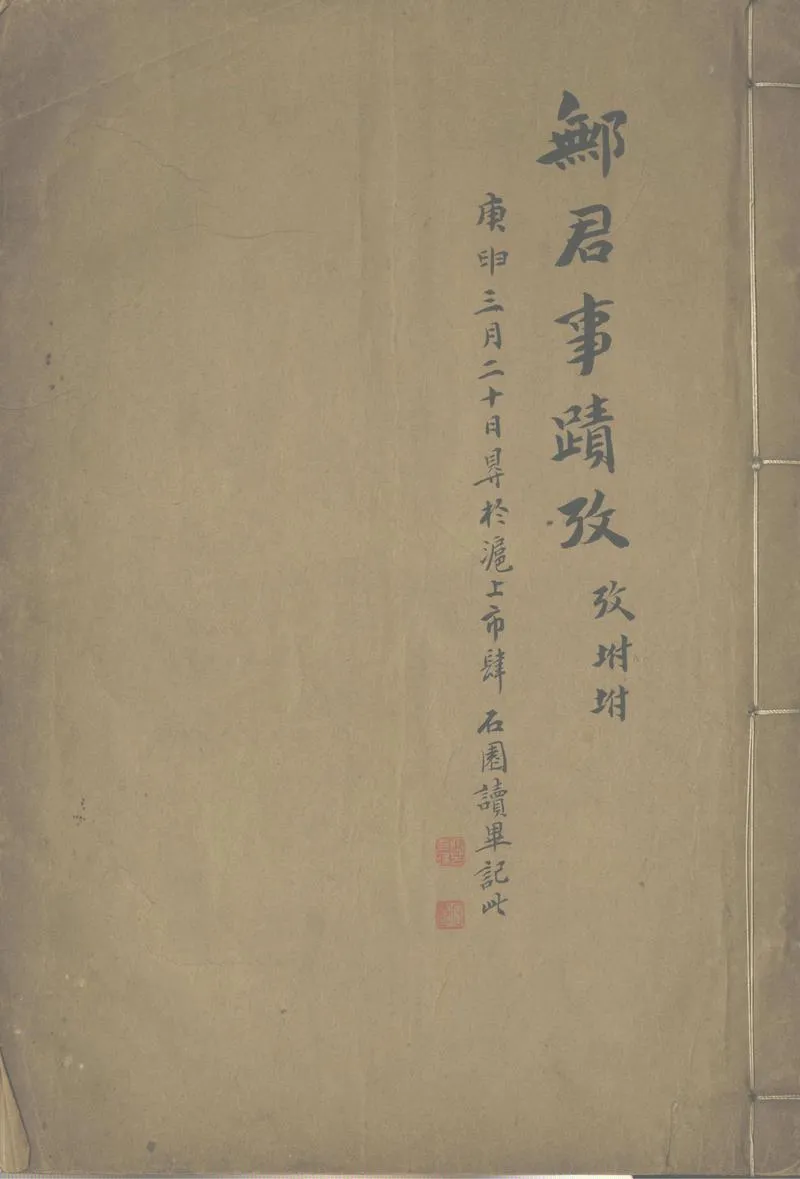 鄦君事蹟攷
攷坿坿
庚申三月二十日㝵於滬上市肆 石園讀畢記此